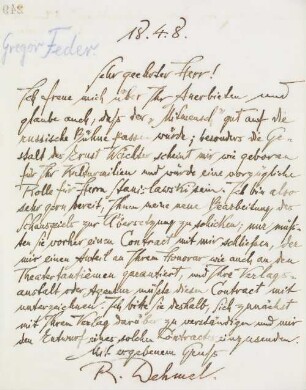 249
Gregor Feder
18.4.8.
Sehr geehrter Herr!
Ich freue mich über Ihr Anerbieten und
glaube auch, daß der „Mitmensch“ gut auf die
russische Bühne passen würde; besonders die Ge-
stalt des Ernst Wächter scheint mir wie geboren
für Ihr Kulturmilieu und würde eine vorzügliche
Rolle für Herrn Stanislawski sein. Ich bin also
sehr gern bereit, Ihnen meine neue Bearbeitung des
Schauspiels zur Übersetzung zu schicken; nur müß-
ten Sie vorher einen Contract mit mir schließen, der
mir einen Anteil an Ihrem Honorar wie auch an den
Theatertantièmen garantiert, und Ihre Verlags-
anstalt oder Agentur müßte diesen Contract mit
unterzeichnen. Ich bitte Sie deshalb, sich zunächst
mit Ihrem Verlag darüber zu verständigen und mir
den Entwurf eines solchen Contracts einzusenden.
Mit ergebenem Gruß
R. Dehmel.